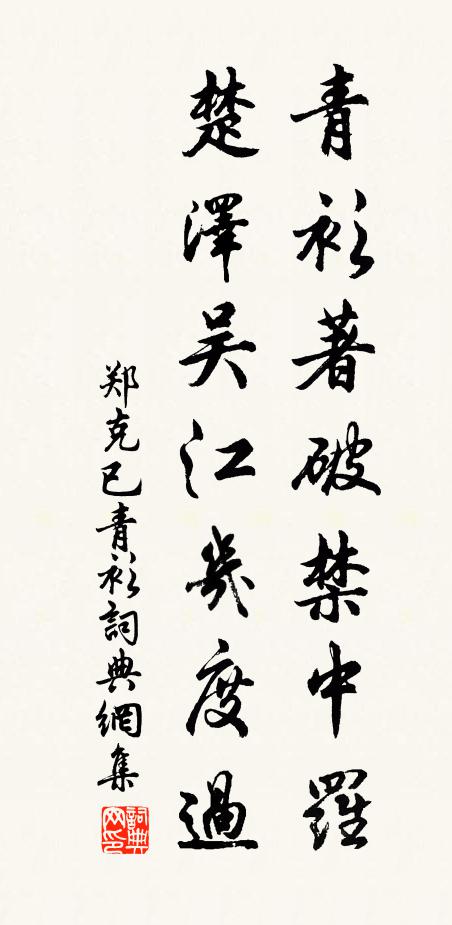 青衫著破禁中羅
楚澤吴江幾度過
郑克已青衫詞典網集
詞典网印